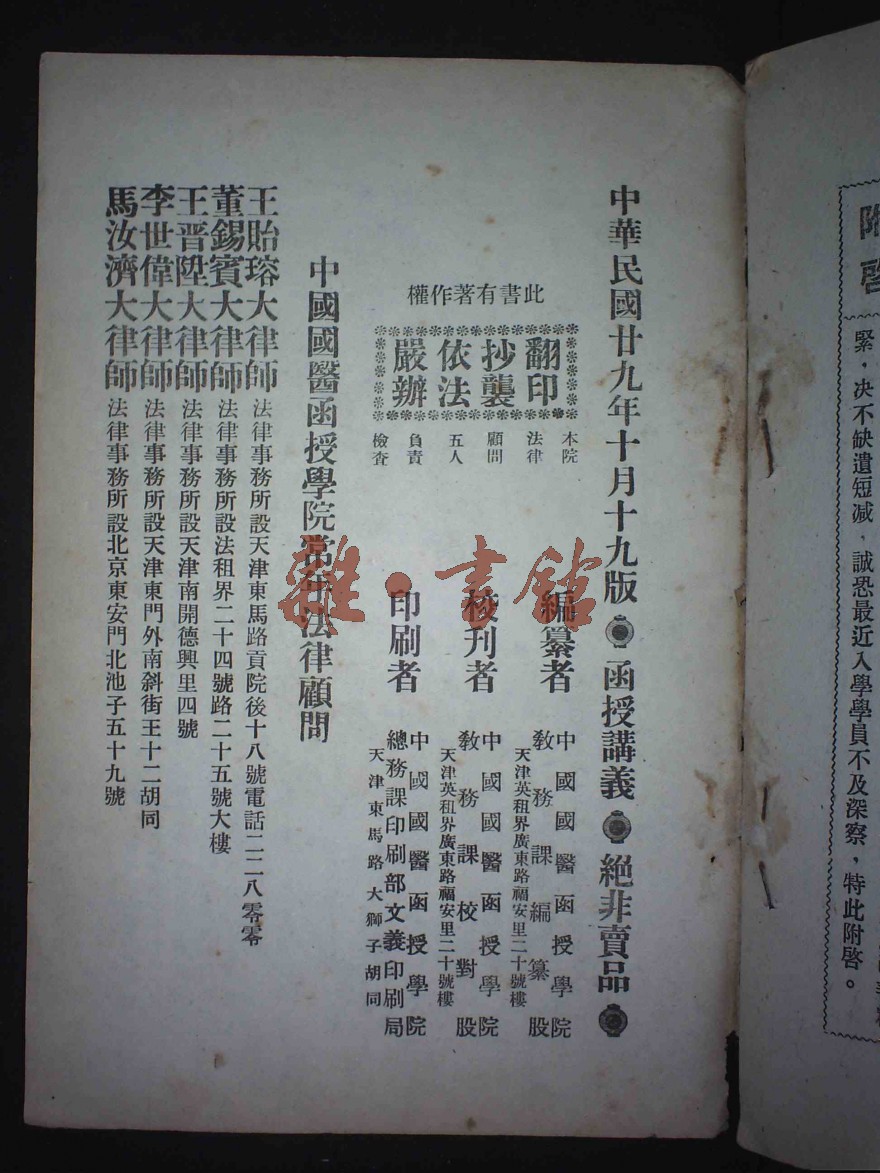 中華民國廿九年十月十九版 函授講義 絕非賣品
此書有著作權
翻印
抄襲
依法
嚴辦
本院
法律
顧問
五人
負責
檢查
編纂者
中國國醫函授學院
教務課編纂股
天津英租界廣東路福安里二十號樓
校刊者
中國國醫函授學院
教務課校對股
天津英租界廣東路福安里二十號樓
印刷者
中國國醫函授學院
總務課印刷部文義印刷局
天津東馬路大獅子胡同
中國國醫函授學院常年法律顧問
王貽瑢大律師 法律事務所設天津東馬路貢院後十八號電話二二八零零
董錫賓大律師 法律事務所設法租界二十四號路二十五號大樓
王晋陞大律師 法律事務所設天津南開德興里四號
李世偉大律師 法律事務所設天津東門外南斜街王十二胡同
馬汝濟大律師 法律事務所設北京東安門北池子五十九號
雜·書館
附啓
緊，决不缺遺短减，誠恐最近入學學員不及深察，特此附啓。